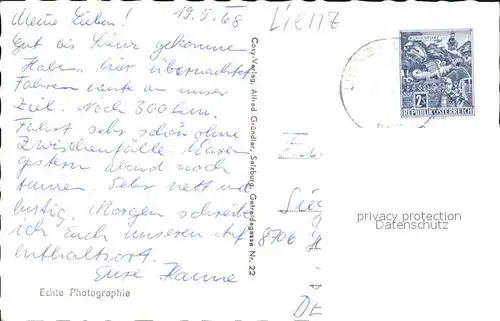 Meine Lieben! 19.5.68
Lienz
Gut bis Lienz gekommen.
Haben hier übernachtet
Fahren heute an unser
Ziel. Noch 300 km.
Fahrt sehr schön ohne
Zwischenfälle. Waren
gestern abend noch
tanzen. Sehr nett und
lustig. Morgen schreibe
ich Euch unseren Auf
enthaltsort.
Eure Hanne
Echte Photographie
Cosy-Verlag, Alfred Gründler, Salzburg, Getreidegasse Nr. 22
KLAGENFURT
2S
REPUBLIK ÖSTERREICH
8706
privacy protection
Datenschutz